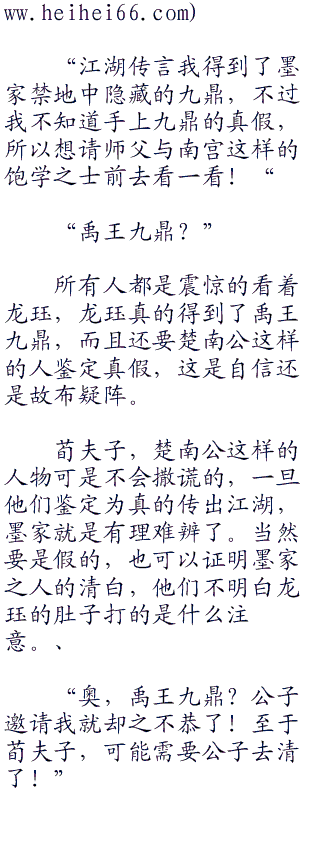 ww.heihei66.com)
“江湖传言我得到了墨
家禁地中隐藏的九鼎，不过
我不知道手上九鼎的真假，
所以想请师父与南宫这样的
饱学之士前去看一看！“
“禹王九鼎？”
所有人都是震惊的看着
龙珏，龙珏真的得到了禹王
九鼎，而且还要楚南公这样
的人鉴定真假，这是自信还
是故布疑阵。
荀夫子，楚南公这样的
人物可是不会撒谎的，一旦
他们鉴定为真的传出江湖，
墨家就是有理难辨了。当然
要是假的，也可以证明墨家
之人的清白，他们不明白龙
珏的肚子打的是什么注
意。、
“奥，禹王九鼎？公子
邀请我就却之不恭了！至于
荀夫子，可能需要公子去清
了！”